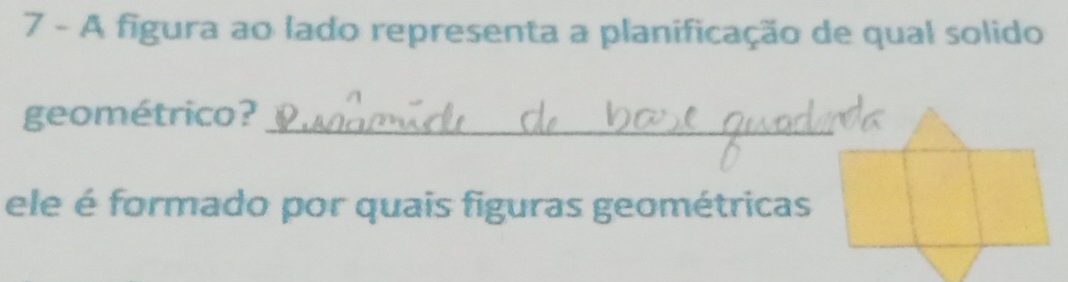 7 - A figura ao lado representa a planificação de qual solido
geométrico? Pirâmide de base quadrada
ele é formado por quais figuras geométricas